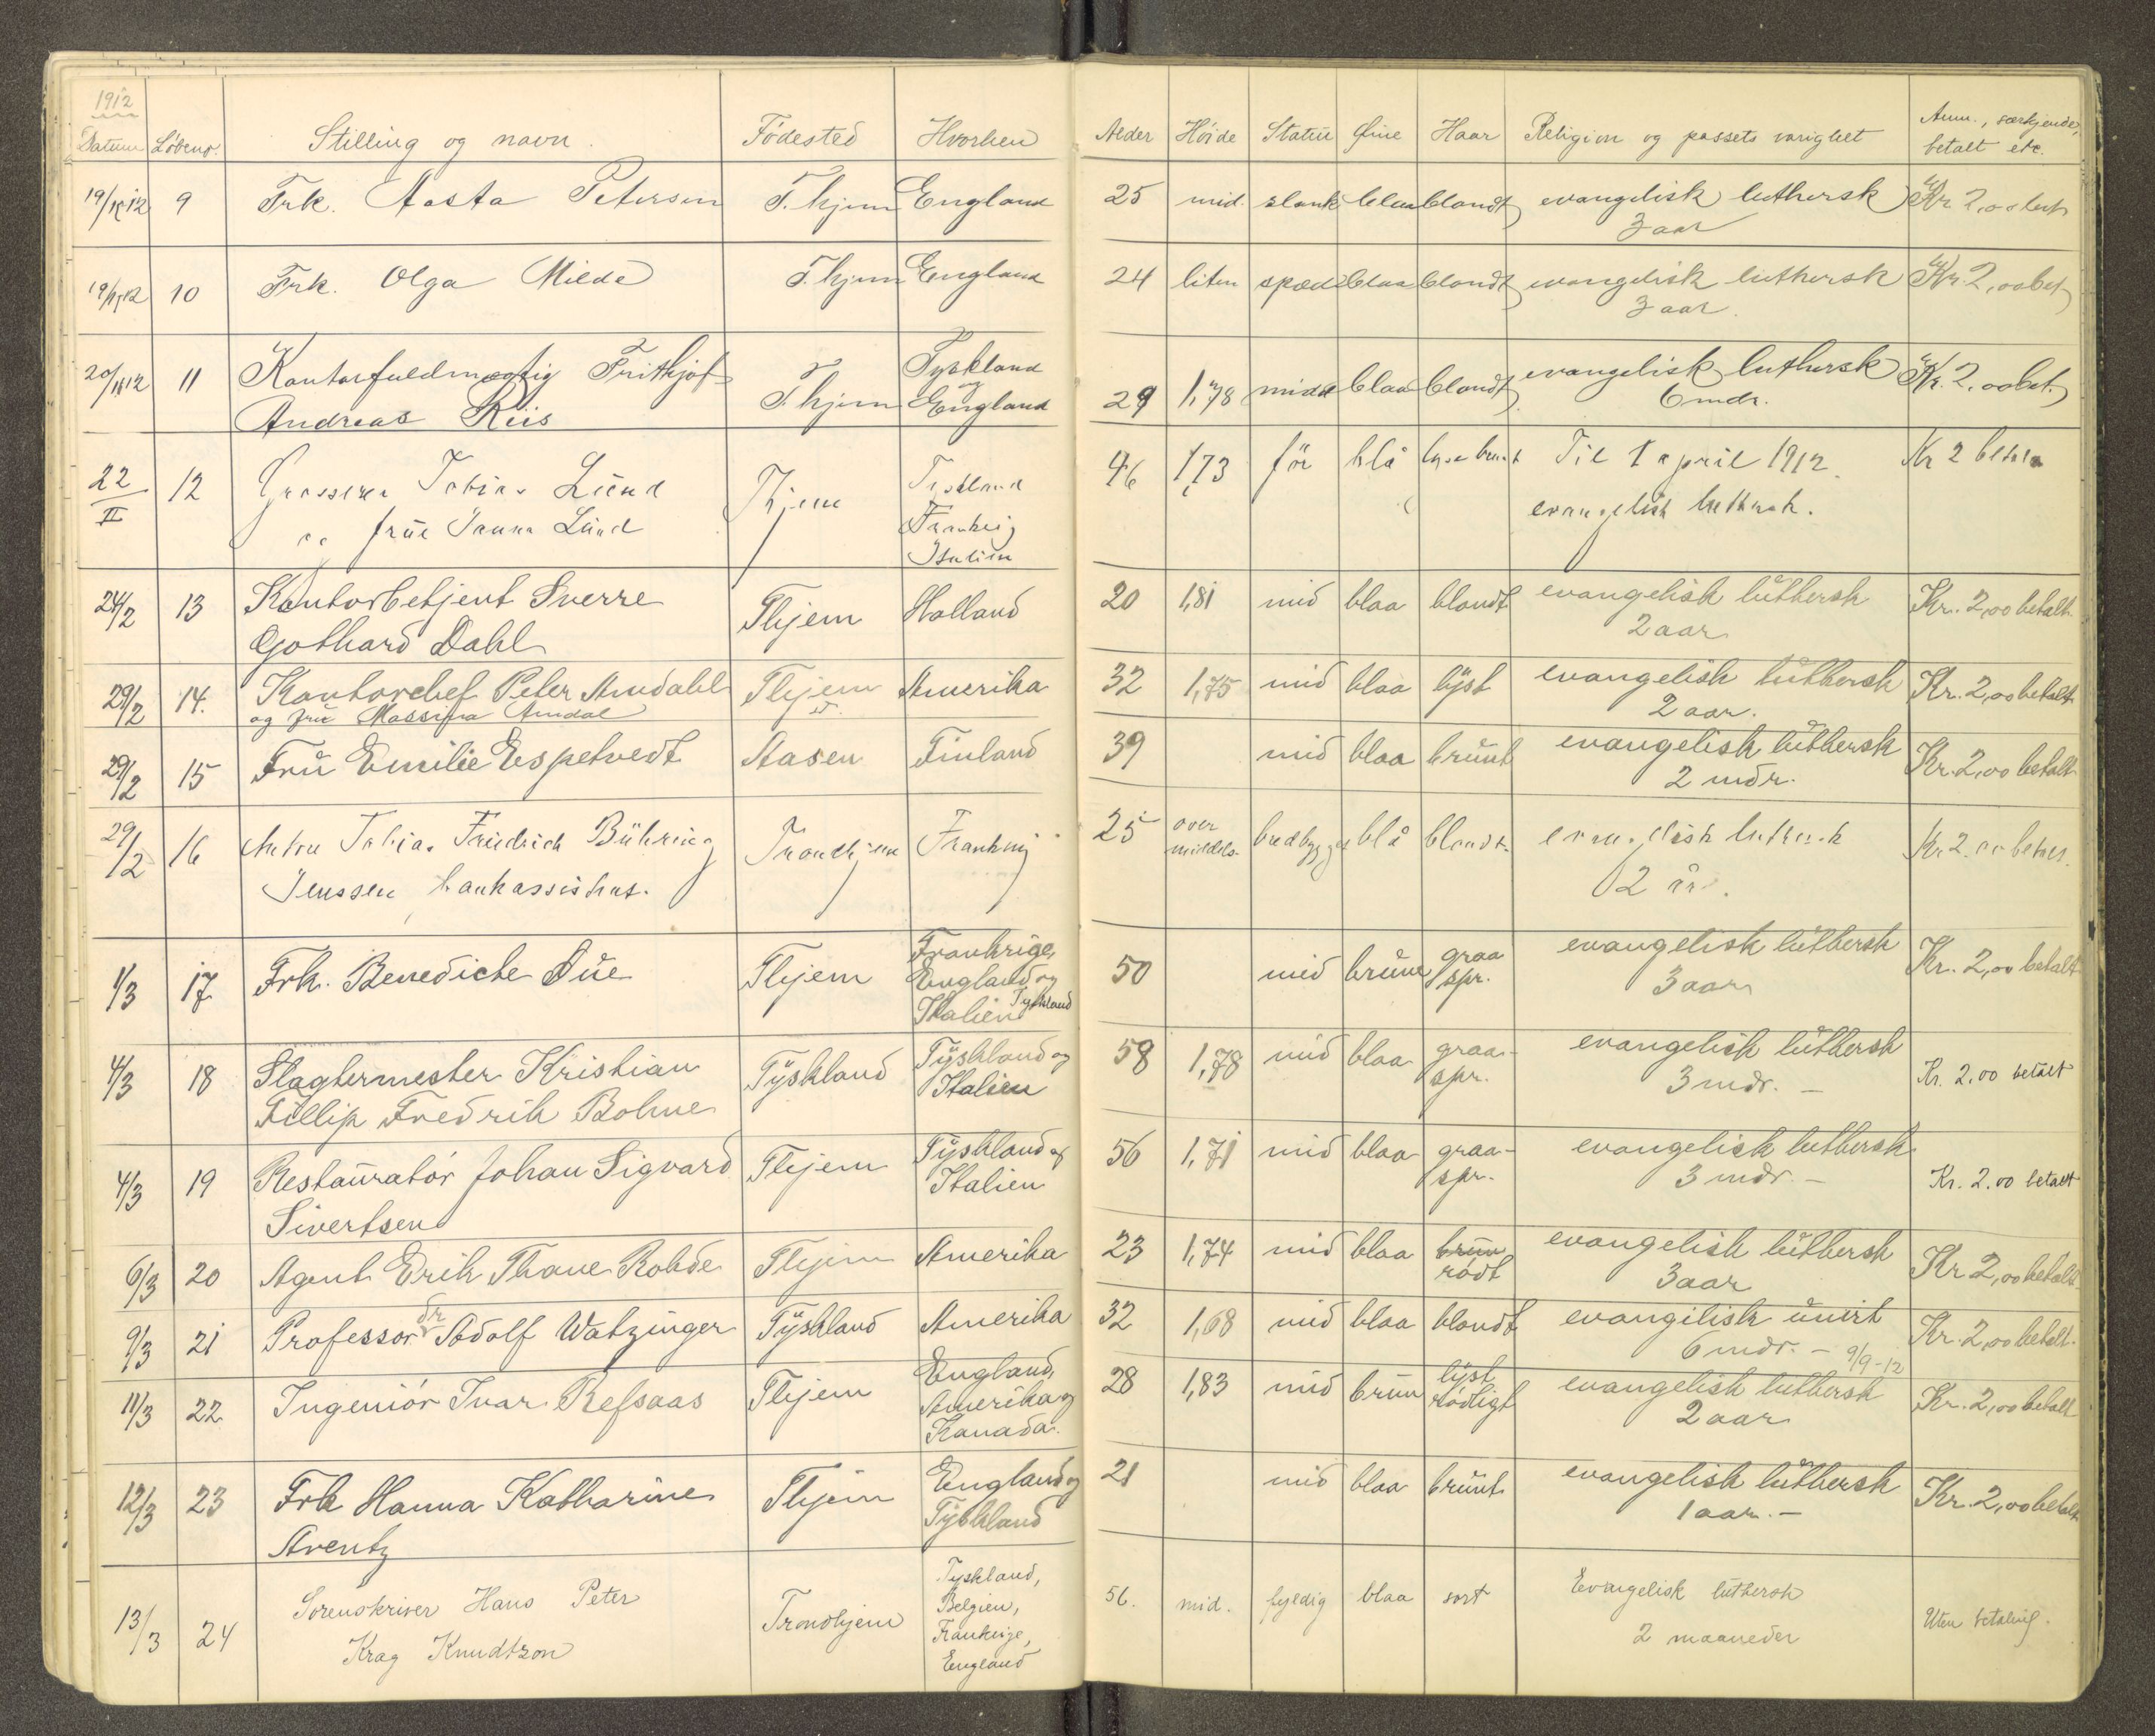 1912
Datum Løbeno. Stilling og navn. Fødested Hvorhen Alder Høide Statur Øine Haar Religion og passets varighet Anm., særkjende,
betalt etc.
19/II 12 9 Frk. Aasta Petersen T.hjem England 25 mid. slank blaa blondt evangelisk luthersk Kr 2,00 bet
3 aar
19/II 12 10 Frk. Olga Milde T.hjem England 24 liten spæd blaa blondt evangelisk luthersk Kr. 2,00 bet
3 aar.
20/II 12 11 Kontorfuldmægtig Frithjof Tyskland evangelisk luthersk Kr. 2.00 bet.
Andreas Riis T.hjem og England 29 1,78 midd blaa blondt 6 mdr.
22/II 12 Grosserer Tobias Lund Thjem Tyskland 46 1,73 før blå lysebrunt Til 1 april 1912. Kr 2 betalt
og frue Janna Lund Frankrig evangelisk luthersk.
Italien
24/2 13 Kontorbetjent Sverre Thjem Holland 20 1,81 mid blaa blondt evangelisk luthersk Kr. 2,00 betalt.
Gothard Dahl 2 aar
29/2 14. Kontorchef Peter Amdahl Thjem Amerika 32 1,75 mid blaa lyst evangelisk luthersk Kr. 2,00 betalt
og frue Amdal 2 aar.
29/2 15 Fru Emilie Espetvedt Aasen Finland 39 mid blaa brunt evangelisk luthersk Kr. 2,00 betalt
2 mdr.
29/2 16 Anton Tobias Friedrich Bühring Trondhjem Frankrig 25 over middels bredbygget blå blondt evangelisk luthersk Kr 2.00 betalt.
Jenssen bankassistent. 2 år.
1/3 17 Frk. Benedicte Due Thjem Frankrige, 50 mid brune graaspr. evangelisk luthersk Kr. 2,00 betalt
England og 3 aar
Italien Tyskland
4/3 18 Slagtermester Kristian Tyskland Tyskland og 58 1,78 mid blaa graa- evangelisk luthersk Kr. 2.00 betalt
Fillip Fredrik Bohne Italien spr. 3 mdr. –
4/3 19 Restauratør Johan Sigvard Thjem Tyskland og 56 1,71 mid blaa graa- evangelisk luthersk Kr. 2.00 betalt
Sivertsen Italien spr. 3 mdr. –
6/3 20 Agent Erik Thane Rohde Thjem Amerika 23 1,74 mid blaa brun evangelisk luthersk Kr 2,00 betalt
rødt 3 aar
9/3 21 Professor dr Adolf Watzinger Tyskland Amerika 32 1,68 mid blaa blondt evangilisk unirt Kr. 2,00 betalt.
6 mdr. – 9/9-12
11/3 22 Ingeniør Ivar Refsaas Thjem England, 28 1,83 mid brun lyst evangelisk luthersk Kr. 2,00 betalt
Amerika og rødligt 2 aar
Kanada.
12/3 23 Frk Hanna Katharine Thjem England og 21 mid blaa brunt evangelisk luthersk Kr. 2,00 betalt
Arentz Tyskland 1 aar. –
13/3 24 Sorenskriver Hans Peter Trondhjem Tyskland, 56. mid. fyldig blaa sort Evangelisk luthersk Uten betaling.
Krag Knudtzon Belgien, 2 maaneder
Frankrige,
England